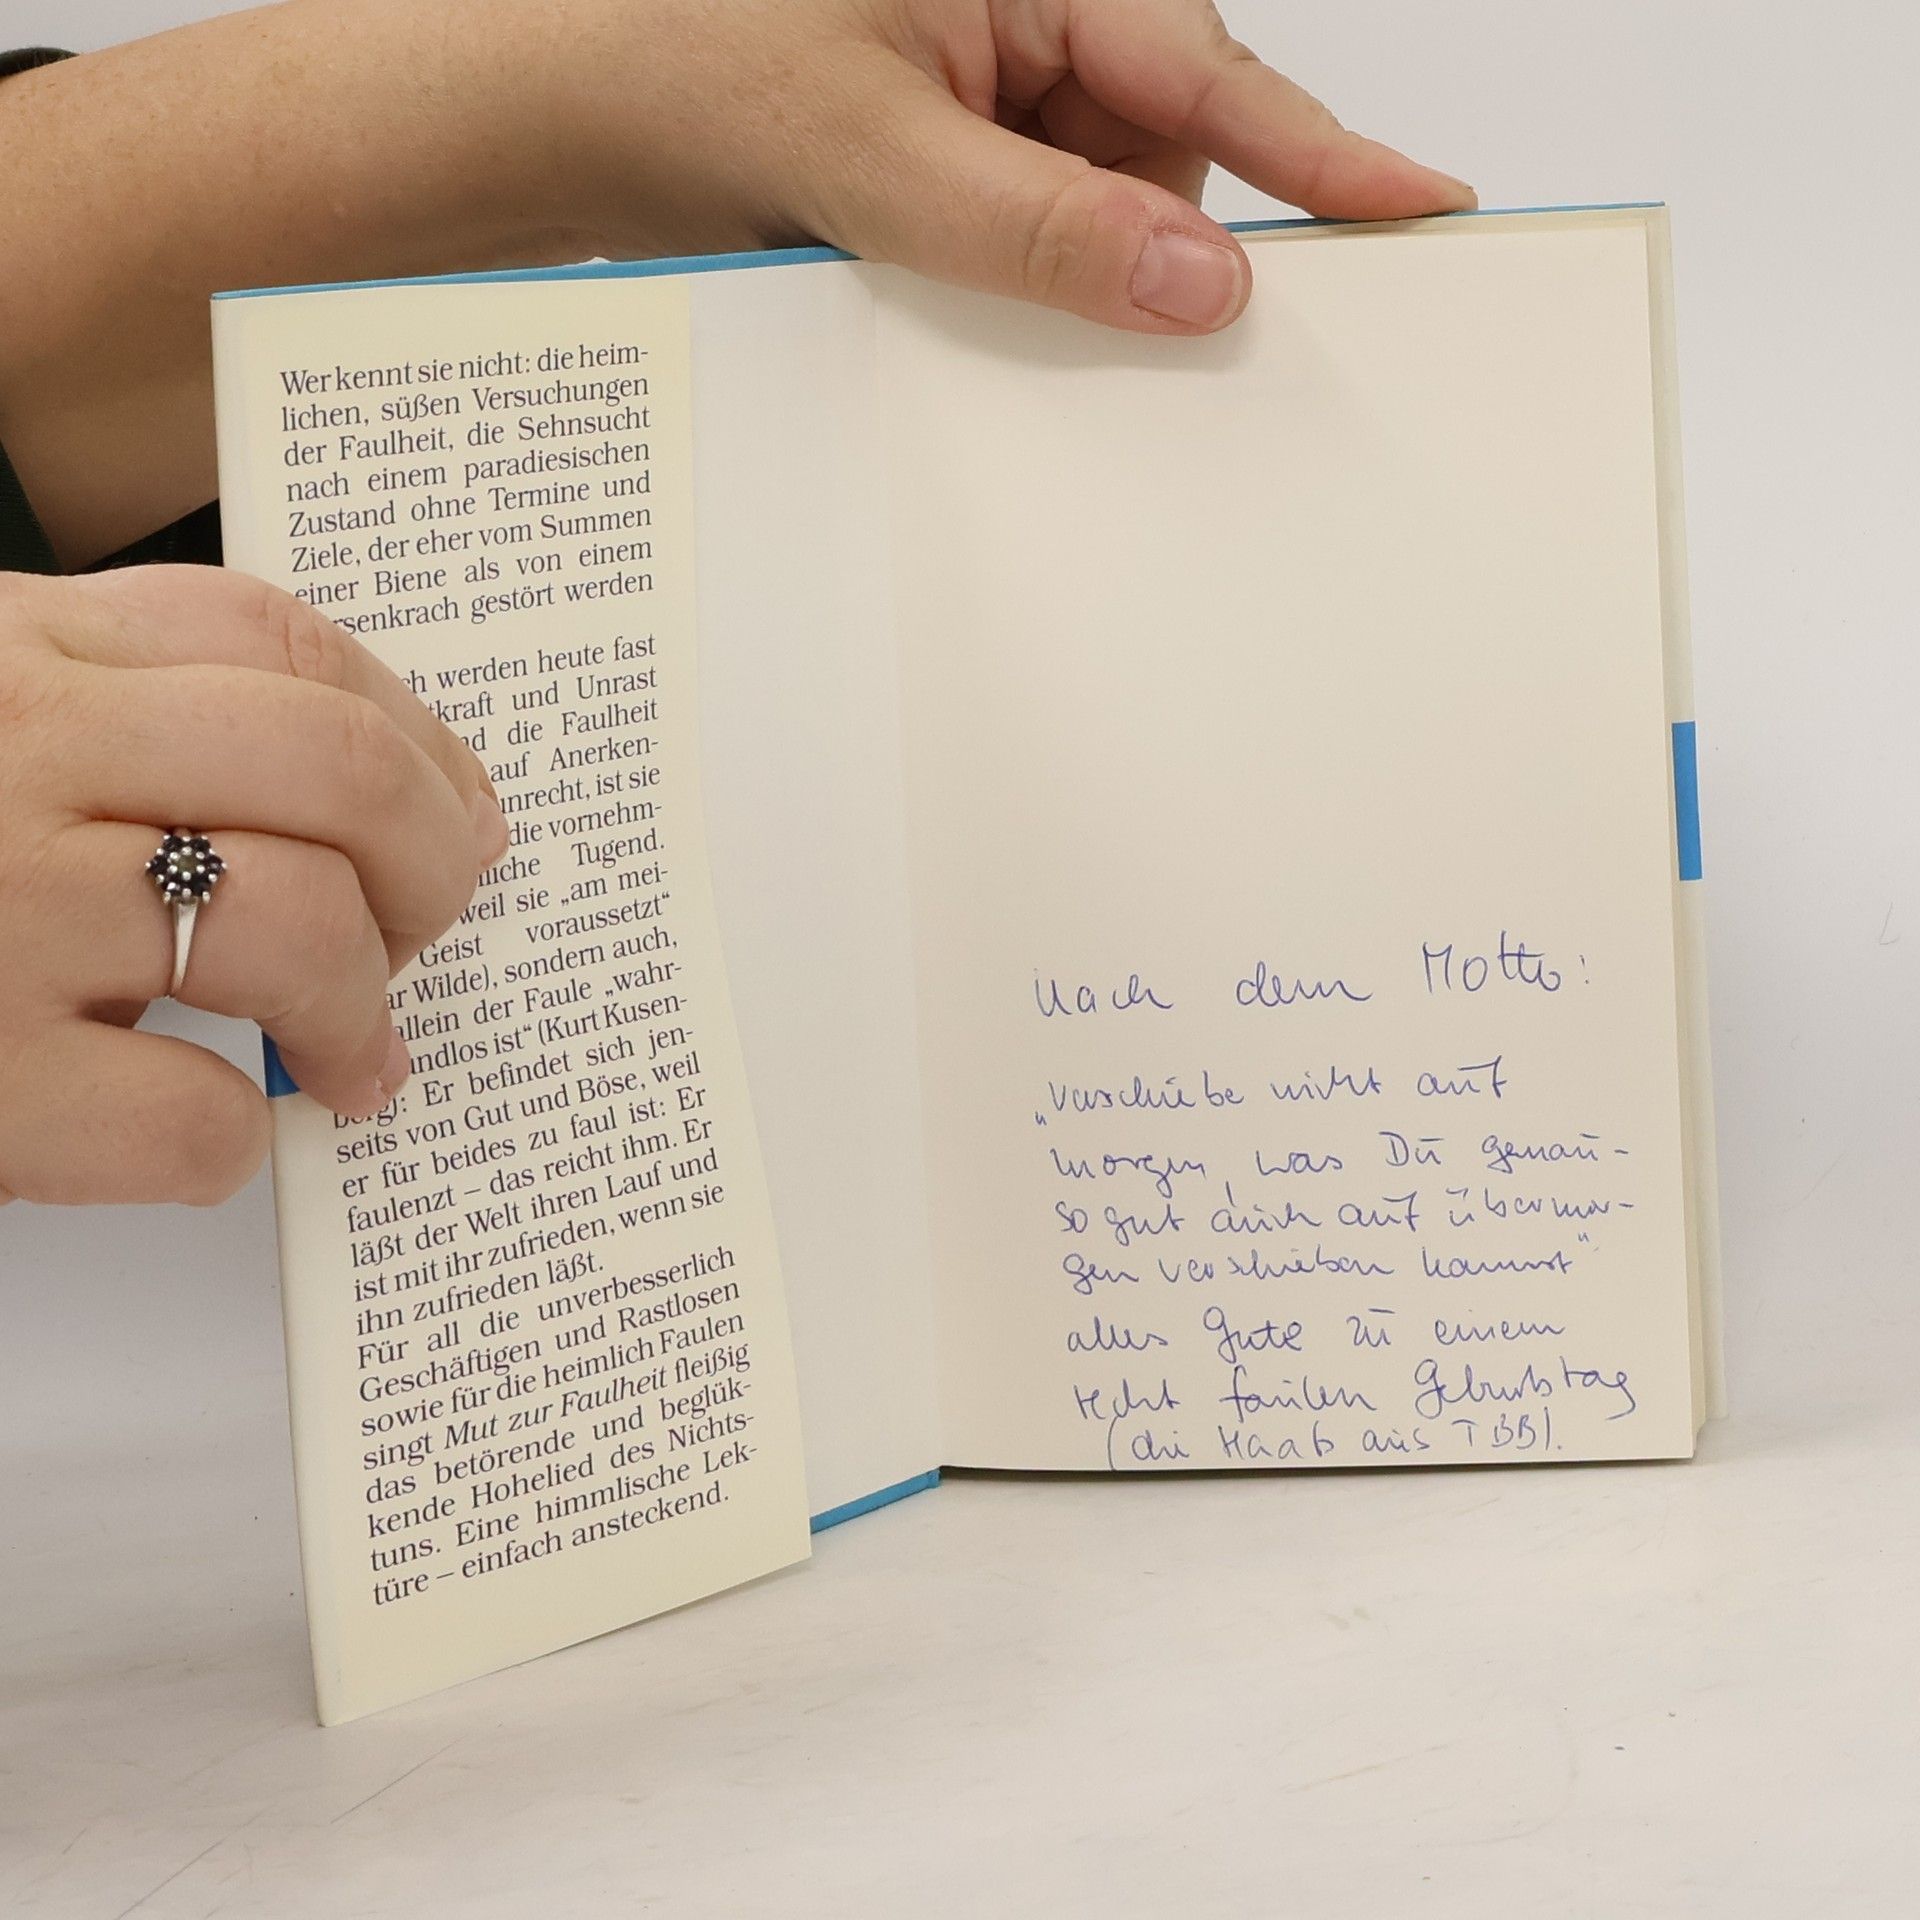 Wer kennt sie nicht: die heim-
lichen, süßen Versuchungen
der Faulheit, die Sehnsucht
nach einem paradiesischen
Zustand ohne Termine und
Ziele, der eher vom Summen
einer Biene als von einem
rsenkrach gestört werden
ch werden heute fast
tkraft und Unrast
nd die Faulheit
auf Anerken-
unrecht, ist sie
die vornehm-
liche Tugend.
weil sie „am mei-
Geist voraussetzt“
ar Wilde), sondern auch,
allein der Faule „wahr-
undlos ist“ (Kurt Kusen-
berg): Er befindet sich jen-
seits von Gut und Böse, weil
er für beides zu faul ist: Er
faulenzt – das reicht ihm. Er
läßt der Welt ihren Lauf und
ist mit ihr zufrieden, wenn sie
ihn zufrieden läßt.
Für all die unverbesserlich
Geschäftigen und Rastlosen
sowie für die heimlich Faulen
singt Mut zur Faulheit fleißig
das betörende und beglük-
kende Hohelied des Nichts-
tuns. Eine himmlische Lek-
türe – einfach ansteckend.
Nach dem Motto:
„Verschiebe nicht auf
morgen, was Du genau-
so gut auch auf übermor-
gen verschieben kannst“
alles Gute zu einem
recht faulen Geburtstag
(die Haabs aus TBB).